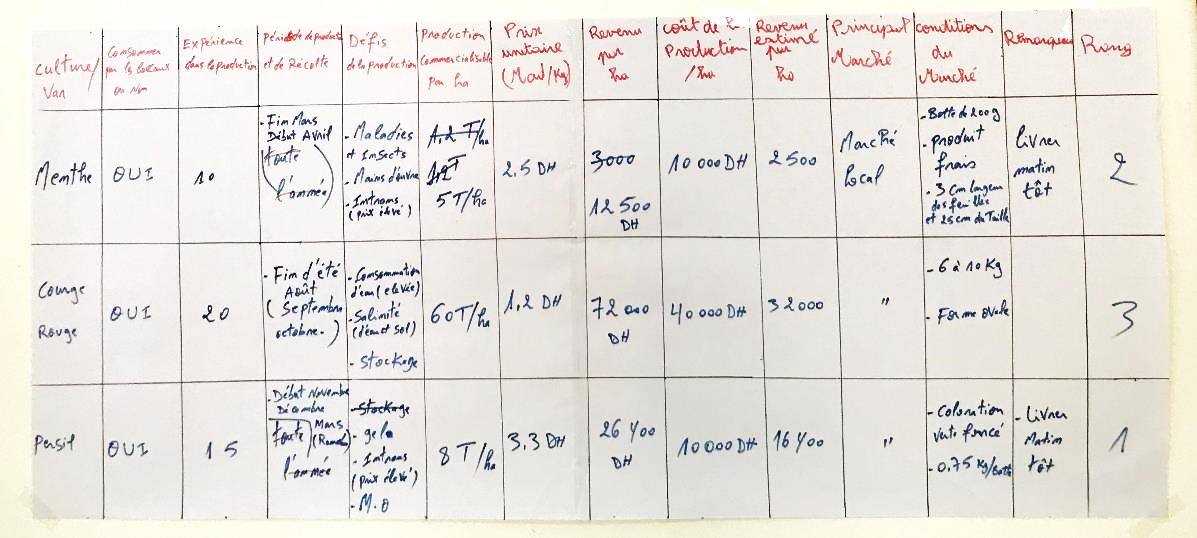 Culture/
Var
Consommer
par les locaux
ou Non
Expérience
dans la production
période de product
et de Récolte
Défis
de la production
production
Commercialisable
par ha
Prix
unitaire
(Mad/Kg)
Revenu
par
ha
coût de la
Production
/ha
Revenu
estimé
par
ha
Principal
Marché
conditions
du
Marché
Remarques
Rang
Menthe
OUI
10
- Fin Mars
Début Avril
(toute
l'année)
- Maladies
et Insects
- Mains d'euvre
- Intrans
(prix élevé)
1,2 T/ha
1,2T
5T/ha
2.5 DH
3000
12500
DH
10 000 DH
2500
Marché
local
- Botte de 200g
- produit
frais
- 3 cm largeur
des feuilles
et 25 cm du Taille
livrer
matin
tôt
2
Courge
Rouge
OUI
20
- Fin d'été
Août
(Septembre
octobre.)
- Consommation
d'eau (elevée)
- Salinité
(d'eau et sol)
- Stockage
60T/ha
1,2 DH
72000
DH
40 000 DH
32000
"
- 6 à 10 Kg
- Forme ovale
3
Persil
OUI
15
- Début Novembre
Décembre
Mars
(toute
l'année
- Stockage
- gel
- Intrans
(prix élevé)
- M.O
8T/ha
3.3 DH
26 400
DH
10 000 DH
16 400
"
- Coloration
verte foncé
- 0.75 Kg/botte
- Livrer
Matin
tôt
1